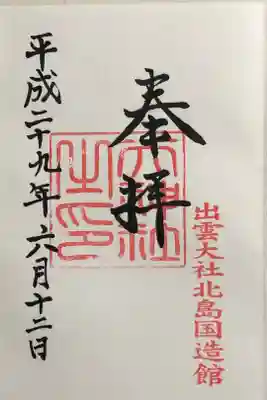 出雲大社北島国造館
奉拝
平成二十九年六月十二日